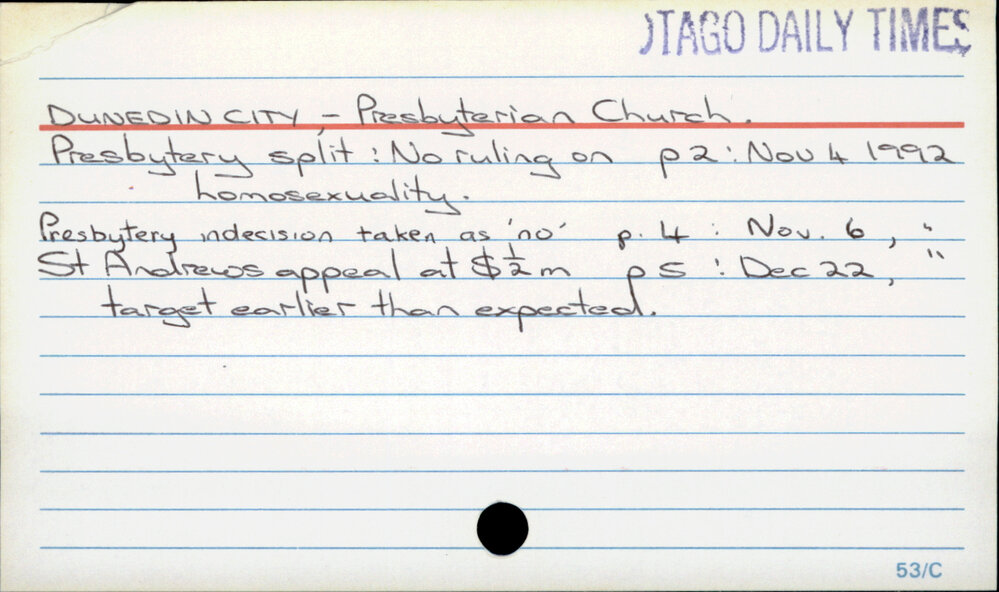 OTAGO DAILY TIMES
DUNEDIN CITY - Presbyterian Church.
Presbytery split : No ruling on p2 : Nov 4 1992
homosexuality.
Presbytery indecision taken as 'no' p. 4 : Nov. 6, "
St Andrews appeal at $½m p5 : Dec 22, "
target earlier than expected.
53/C